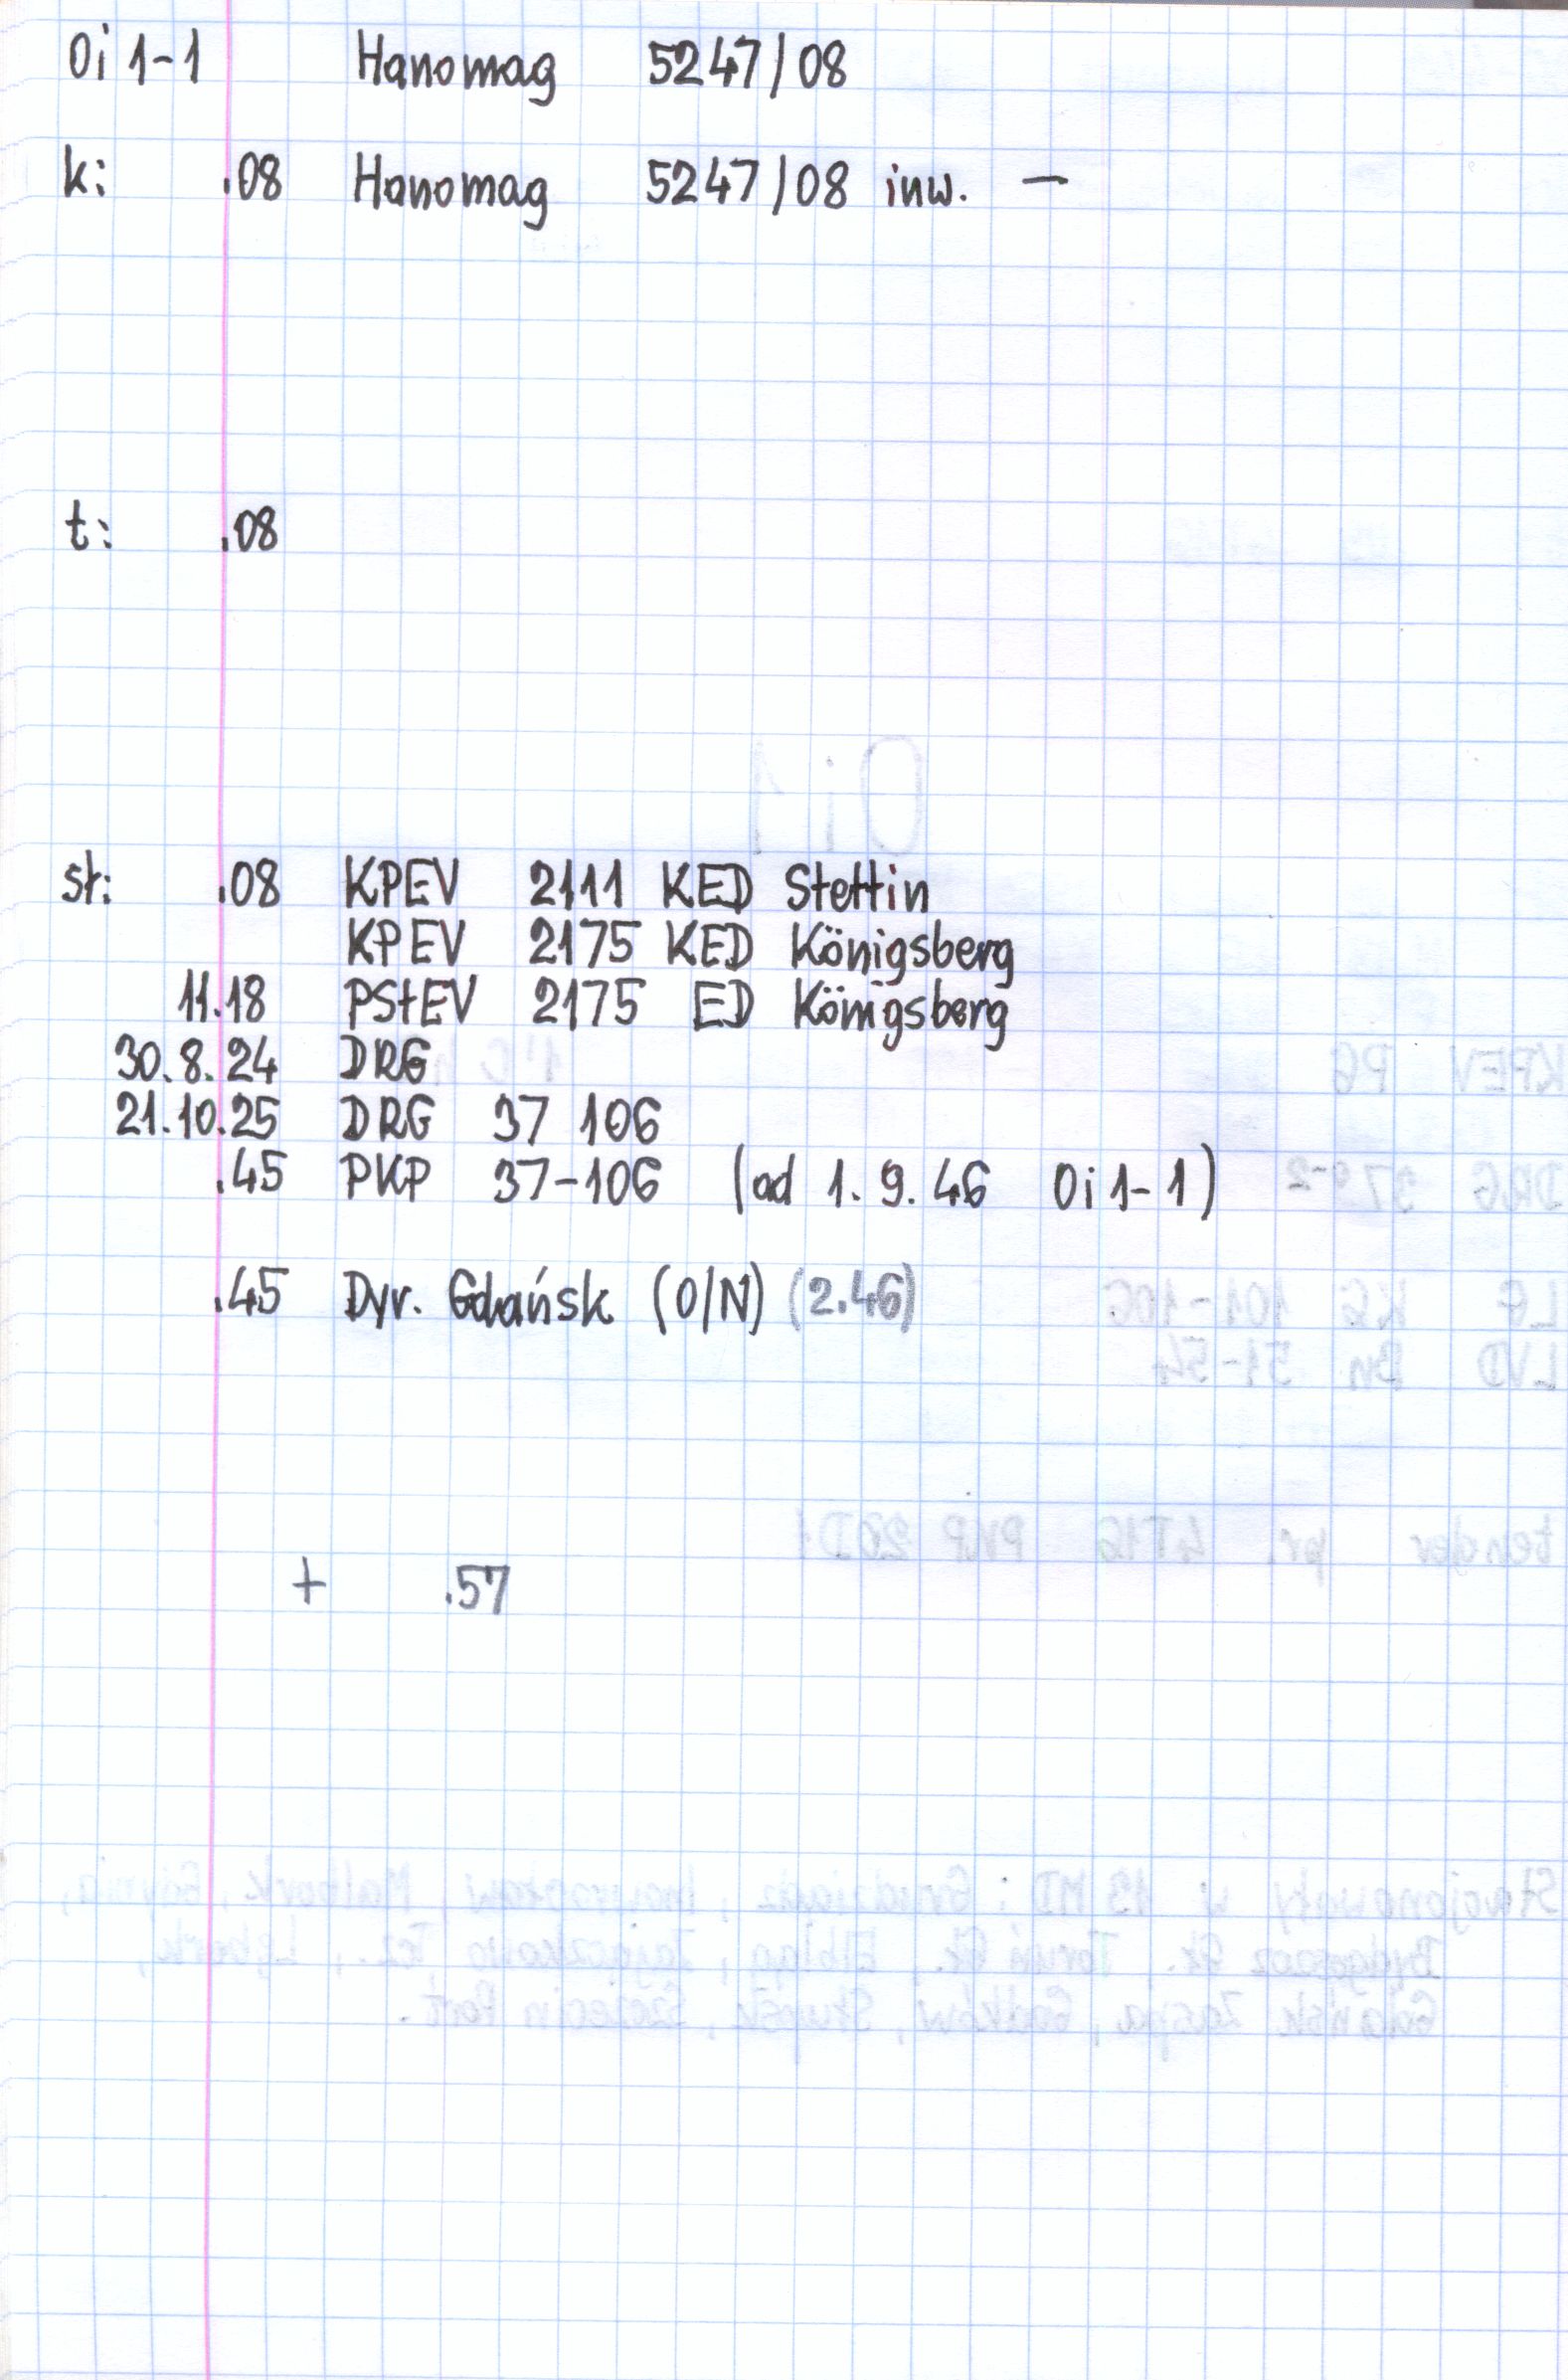 Oi 1-1 Hanomag 5247/08
k: .08 Hanomag 5247/08 inw. —
t: .08
st: .08 KPEV 2111 KED Stettin
KPEV 2175 KED Königsberg
11.18 PStEV 2175 ED Königsberg
30.8.24 DRG
21.10.25 DRG 37 106
.45 PKP 37-106 (od 1.9.46 Oi 1-1)
.45 Dyr. Gdańsk (O/N) (2.46)
+ .57